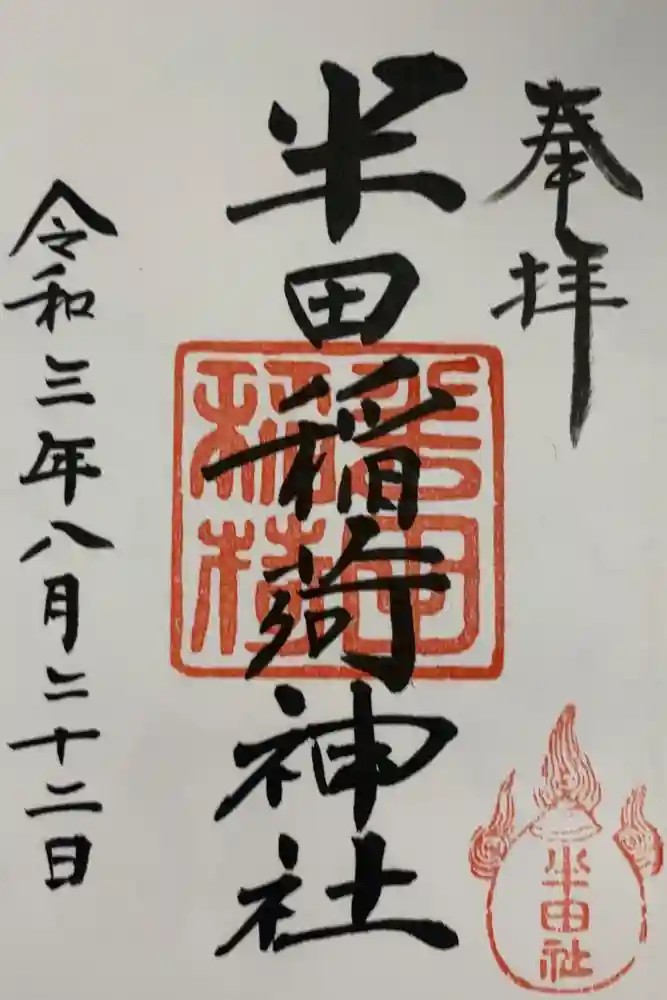 奉拝
半田稲荷神社
半田稲荷
令和三年八月二十二日
半田社